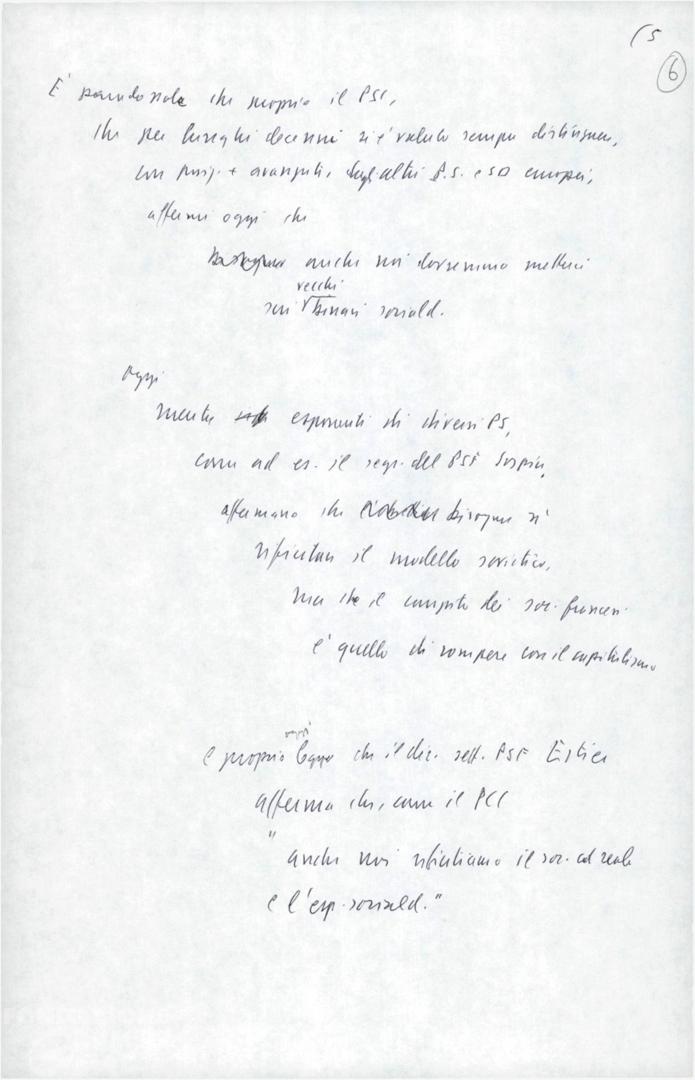 (5
6
È paradossale che proprio il PSI,
che per lunghi decenni si è voluto sempre distinguere,
con posiz. + avanzate, dagli altri P.S. e SD europei,
affermi oggi che
anche noi dovremmo metterci
vecchi
sui binari sociald.
Oggi
mentre esponenti di diversi PS,
come ad es. il segr. del PSF Jospin,
affermano che bisogna sì
rifiutare il modello sovietico,
ma che il compito dei soc. francesi
è quello di rompere con il capitalismo
oggi
e proprio leggo che il dir. sett. PSF Estier
afferma che, come il PCI
"
anche noi rifiutiamo il soc. cd reale
e l'esp. sociald."